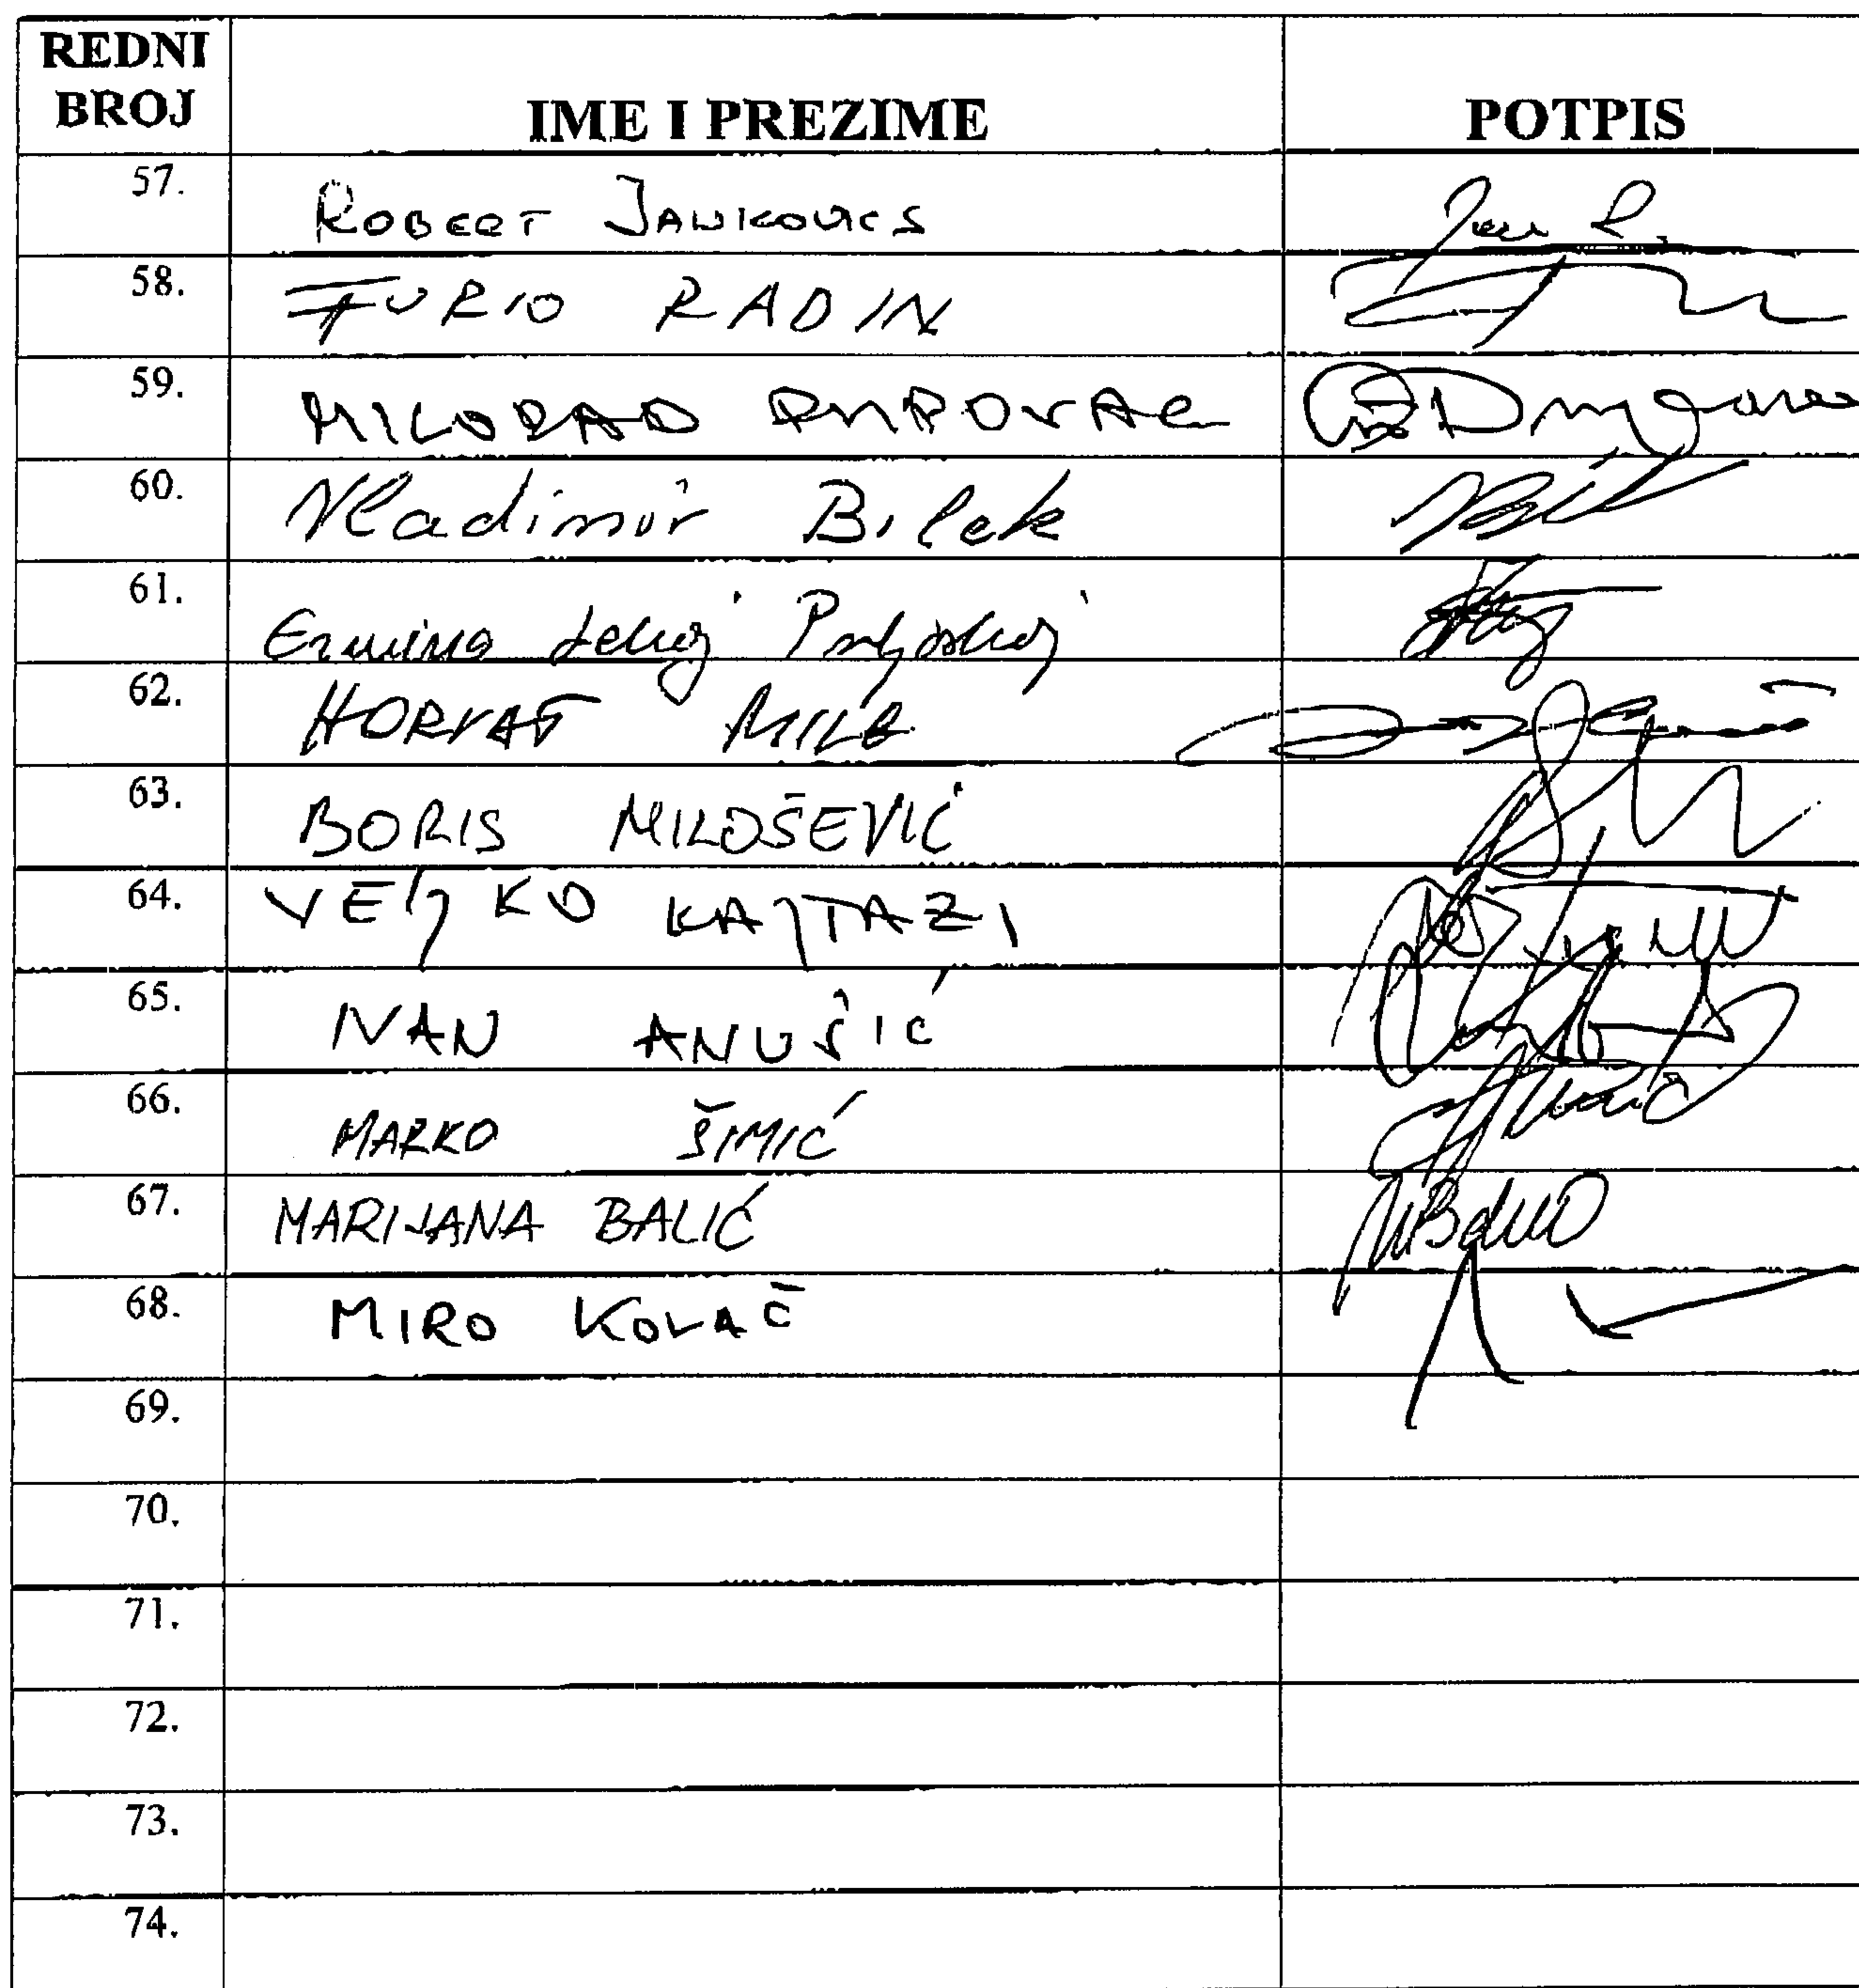 REDNI BROJ IME I PREZIME POTPIS
57. ROBERT JANKOVICS
58. FURIO RADIN
59. MILORAD PUPOVAC
60. Vladimir Bilek
61. Ermina Lekaj Prljaskaj
62. HORVAT MILE
63. BORIS MILOŠEVIĆ
64. VELJKO KAJTAZI
65. IVAN ANUŠIĆ
66. MARKO ŠIMIĆ
67. MARIJANA BALIĆ
68. MIRO KOVAČ
69.
70.
71.
72.
73.
74.